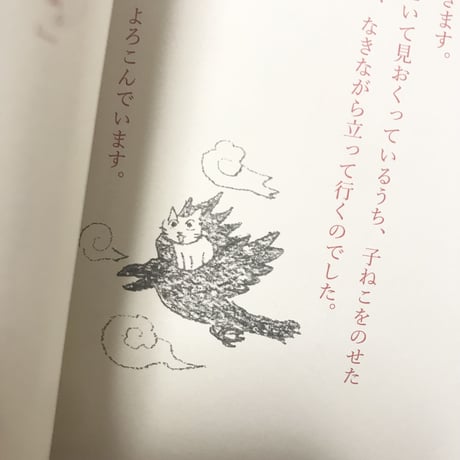 きます。
いて見おくっているうち、子ねこをのせた
なきながら立って行くのでした。
よろこんでいます。